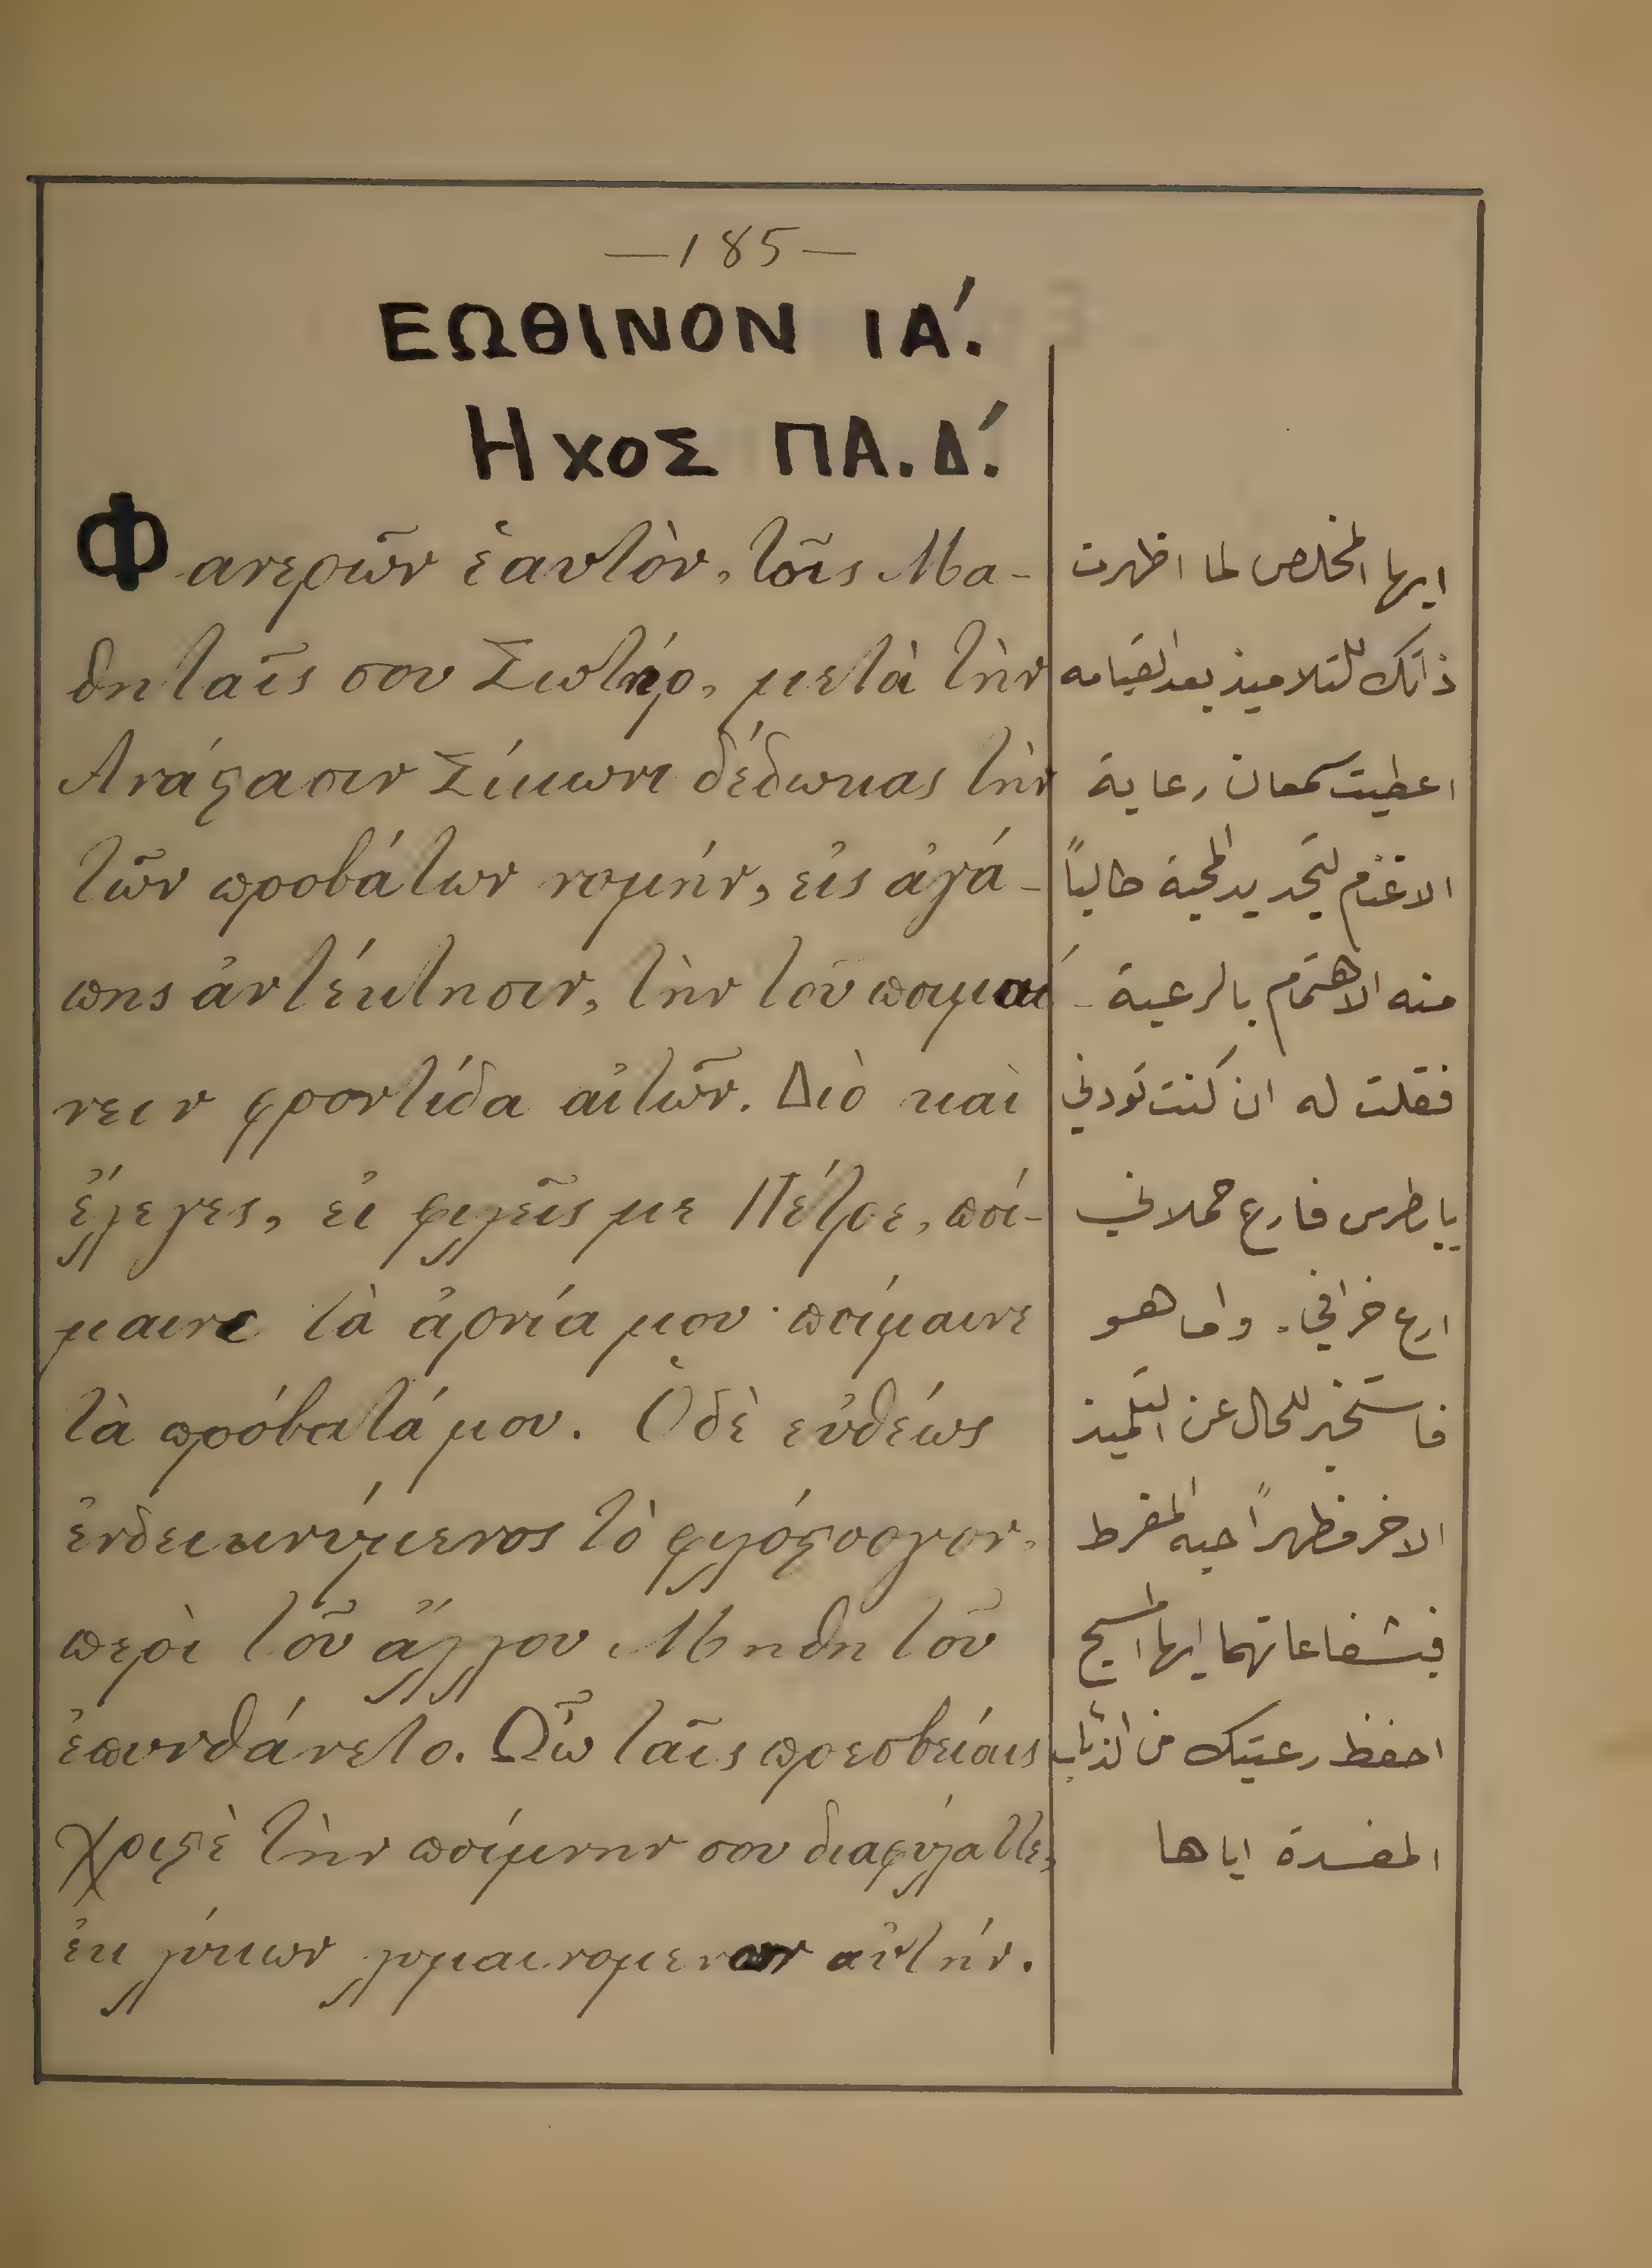 —185—
ΕΩΘΙΝΟΝ ΙΑ΄.
Ηχος ΠΑ.Δ΄.
Φανερῶν ἑαυτὸν, τοῖς Μα-
θηταῖς σου Σωτήρ, μετὰ τὴν
Ανάςασιν Σίμωνι δέδωκας τὴν
τῶν προβάτων νομήν, εἰς ἀγά-
πης ἀντέκτησιν, τὴν τοῦ ποιμαί
νειν φροντίδα αἰτῶν. Διὸ καὶ
ἔλεγες, εἰ φιλεῖς με Πέτρε, ποί-
μαινε τὰ ἀρνία μου· ποίμαινε
τὰ πρόβατά μου. Ὁδὲ εὐθέως
ἐνδεικνύμενος τὸ φιλόςοργον,
περὶ τοῦ ἄλλου Μηθητοῦ
ἐπυνθάνετο. Ὧν ταῖς πρεσβείαις
Χριςὲ τὴν ποίμνην σου διαφύλαττε,
ἐκ λύκων λυμαινομενων αὐτήν.
ايها المخلص لما اظهرت
ذاتك للتلاميذ بعد القيامه
اعطيت سمعان رعاية
الاغنام لتجديد المحبة طالباً
منه الاهتمام بالرعية -
فقلت له ان كنت تودني
يا بطرس فارع حملاني
ارع خرافي. واما هو
فاستخبر للحال عن التلميذ
الاخر مظهراً حبه المفرط
فبشفاعاتهما ايها المسيح
احفظ رعيتك من الذئاب
المفسدة اياها